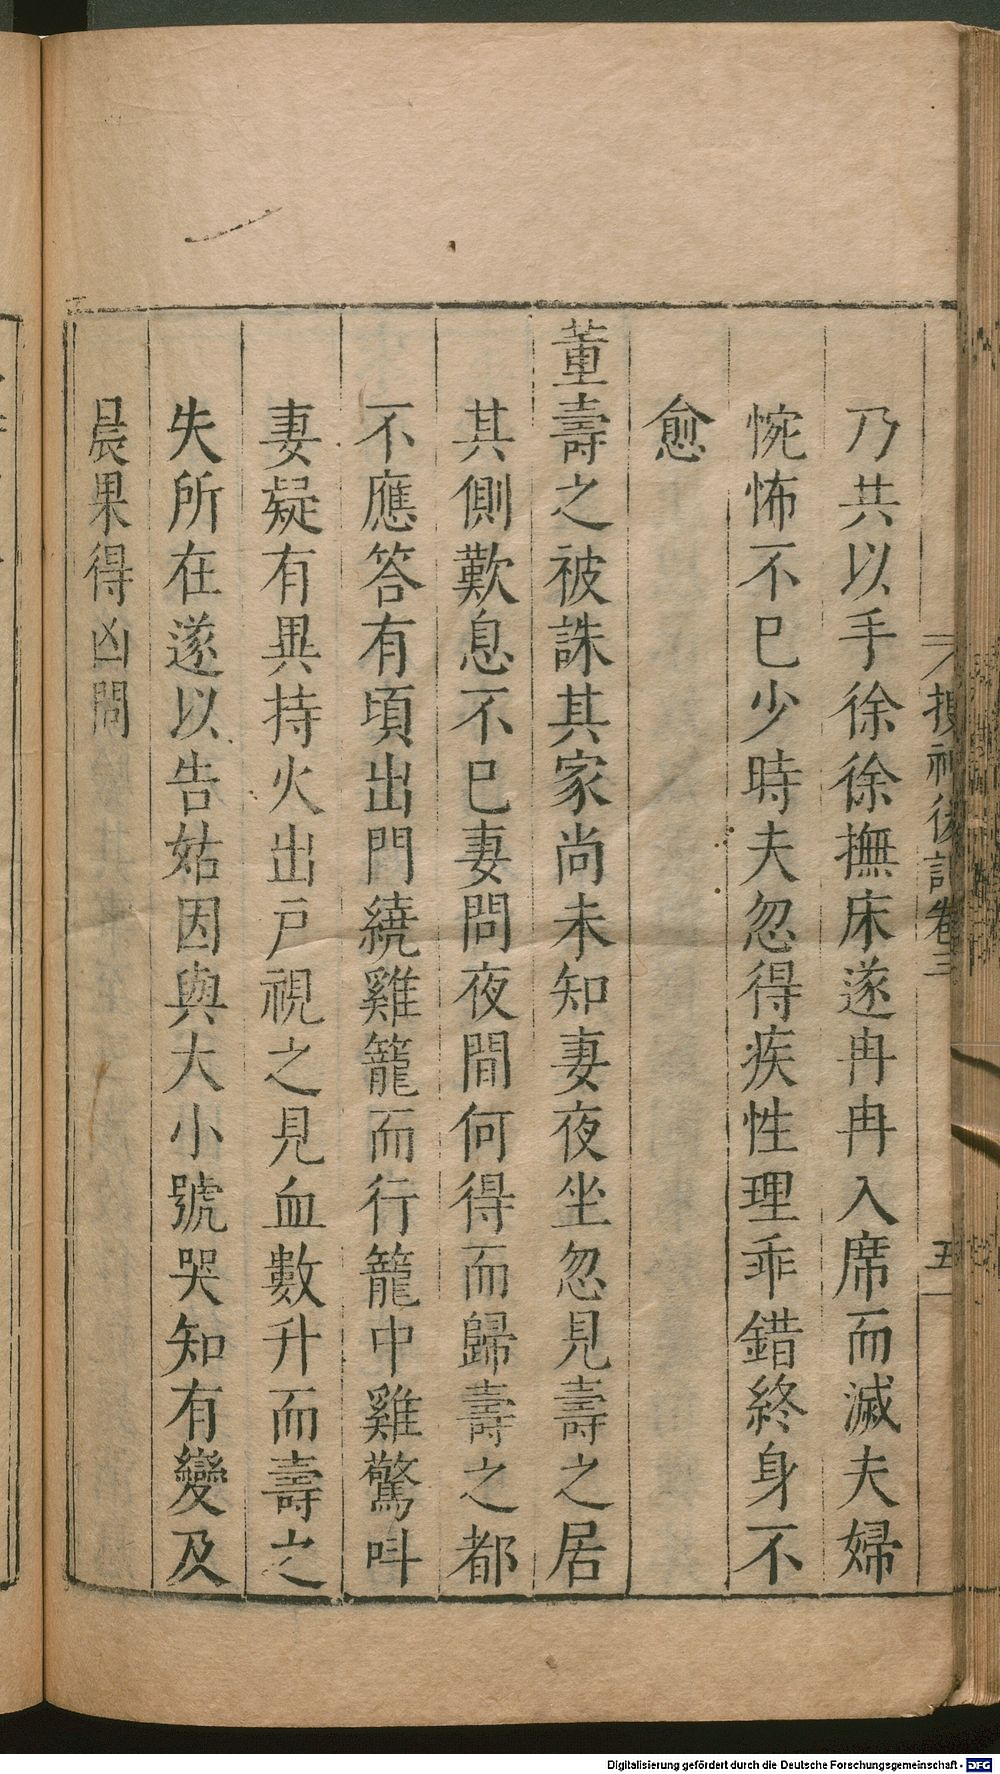 乃共以手徐徐撫床遂冉冉入席而滅夫婦
惋怖不已少時夫忽得疾性理乖錯終身不
愈
董壽之被誅其家尚未知妻夜坐忽見壽之居
其側歎息不已妻問夜間何得而歸壽之都
不應答有頃出門繞雞籠而行籠中雞驚呌
妻疑有異持火出戶視之見血數升而壽之
失所在遂以告姑因與大小號哭知有變及
晨果得凶問
搜神後記卷三
五
Digitalisierung gefördert durch die Deutsche Forschungsgemeinschaft - DFG